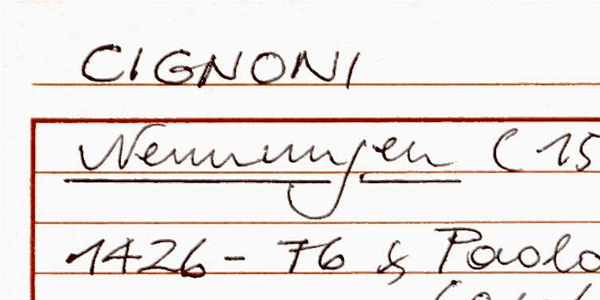 CIGNONI
Nennungen (15
1426 - 76 & Paolo